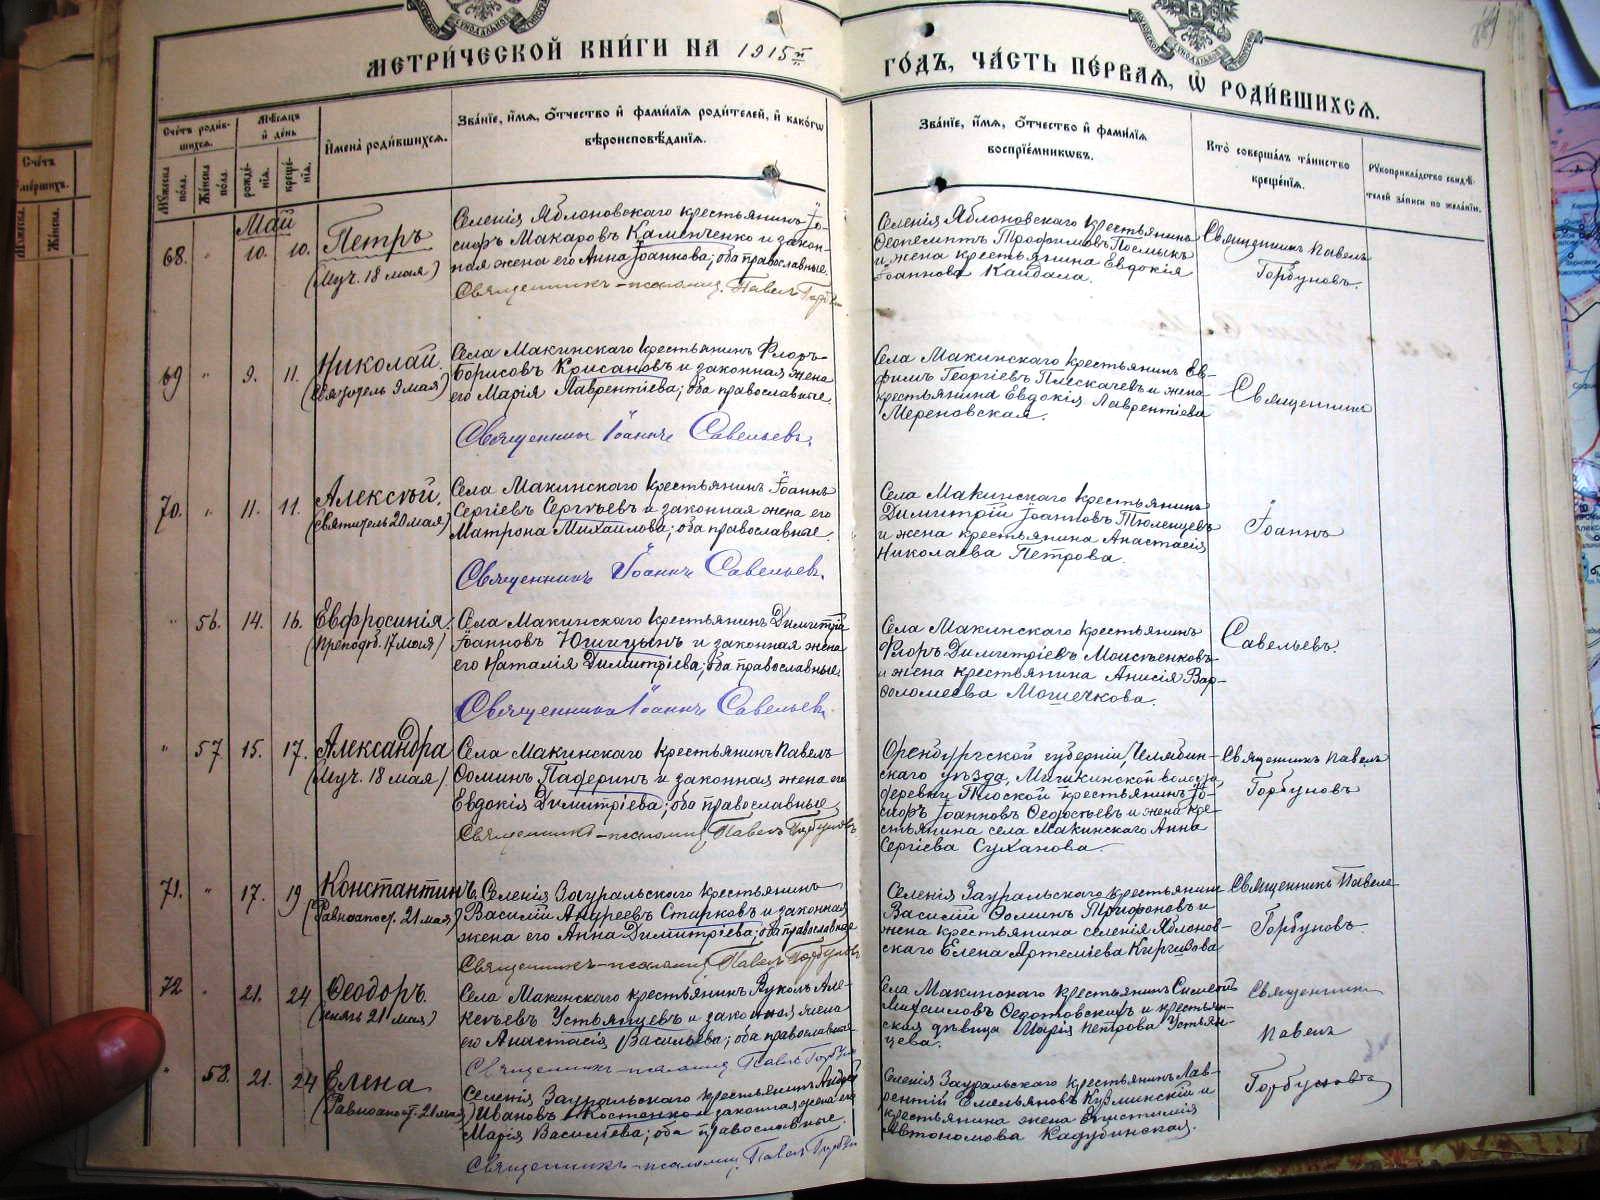 МЕТРИ́ЧЕСКОЙ КНИ́ГИ НА 1915й ГО́ДЪ, ЧА́СТЬ ПЕ́РВАѦ, Ѡ РОДИ́ВШИХСѦ.
Сче́тъ роди́в-
шихсѧ.
Му́жеска по́ла.
Же́нска по́ла.
Мѣ́сѧцъ
и҆ де́нь
рожде́-
нїѧ.
креще́-
нїѧ.
И҆мена̀ роди́вшихсѧ.
Зва́нїе, и҆́мѧ, ѻ҆́тчество и҆ фами́лїѧ роди́телей, и҆ како́гѡ
вѣроисповѣ́данїѧ.
Зва́нїе, и҆́мѧ, ѻ҆́тчество и҆ фами́лїѧ
воспрїе́мникѡвъ.
Кто̀ соверша́лъ та́инство
креще́нїѧ.
Рꙋкоприкла́дство свидѣ́-
телей за́писи по жела́нїю.
Май
68. " 10. 10. Петръ
(Муч. 18 мая)
Селенія Яблоновскаго крестьянинъ Іо-
сифъ Макаровъ Каминченко и закон-
ная жена его Анна Іоаннова; оба православные.
Священникъ-псаломщ. Павелъ
Селенія Яблоновскаго крестьянинъ
Трофимовъ
и жена крестьянина Евдокія
Іоаннова Кайдала.
Священникъ Павелъ
Горбуновъ.
69 " 9. 11. Николай.
(Святитель 9 мая)
Села Макинскаго крестьянинъ Флоръ
Борисовъ Крисановъ и законная жена
его Марія Лаврентіева; оба православные.
Священникъ Іоаннъ Савельевъ.
Села Макинскаго крестьянинъ Ев-
фимъ Георгіевъ Плескачевъ и жена
крестьянина Евдокія Лаврентіева
Мереновская.
Священникъ
70. " 11. 11. Алексѣй.
(Святитель 20 мая)
Села Макинскаго крестьянинъ Іоаннъ
Сергіевъ Сергѣевъ и законная жена его
Матрона Михаилова; оба православные.
Священникъ Іоаннъ Савельевъ.
Села Макинскаго крестьянинъ
Димитрій Іоанновъ Тюленцевъ
и жена крестьянина Анастасія
Николаева Петрова.
Іоаннъ
" 56. 14. 16. Евфросинія
(Преподоб. 17 мая)
Села Макинскаго крестьянинъ Димитрій
Іоанновъ и законная жена
его Наталія Димитріева; оба православные.
Священникъ Іоаннъ Савельевъ.
Села Макинскаго крестьянинъ
Флоръ Димитріевъ Моисѣенковъ
и жена крестьянина Анисія Вар-
фоломеева Мошечкова.
Савельевъ.
" 57 15. 17. Александра
(Муч. 18 мая)
Села Макинскаго крестьянинъ Павелъ
Ѳоминъ Паферинъ и законная жена его
Евдокія Димитріева; оба православные
Священникъ-псаломщ. Павелъ Горбуновъ
Оренбургской губерніи, Челябин-
скаго уѣзда, волости
деревни Плоской крестьянинъ Іо-
сифъ Іоанновъ и жена кре-
стьянина села Макинскаго Анна
Сергіева Суханова.
Священникъ Павелъ
Горбуновъ
71. " 17. 19 Константинъ.
(Равноапост. 21 мая)
Селенія Зауральскаго крестьянинъ
Василій Андреевъ Старковъ и законная
жена его Анна Димитріева; оба православные
Священникъ-псаломщ. Павелъ Горбуновъ
Селенія Зауральскаго крестьянинъ
Василій Ѳоминъ Трифоновъ и
жена крестьянина селенія Яблонов-
скаго Елена Артеміева
Священникъ Павелъ
Горбуновъ.
72 " 21. 24 Ѳеодоръ.
(князь 21 мая)
Села Макинскаго крестьянинъ Вуколъ Але-
ксѣевъ Устьянцевъ и законная жена
его Анастасія Васильева; оба православные
Священникъ-псаломщ. Павелъ
Села Макинскаго крестьянинъ
Михаиловъ Ѳедотовскихъ и крестьян-
ская дѣвица Марія Петрова Устьян-
цева.
Священникъ
Павелъ
" 58. 21. 24 Елена
(Равноапост. 21 мая)
Селенія Зауральскаго крестьянинъ Андрей
Ивановъ Костенко и законная жена его
Марія Васильева; оба православные.
Священникъ-псаломщ. Павелъ
Селенія Зауральскаго крестьянинъ Лав-
рентій Емельяновъ Кузминскій и
крестьянина жена
Автономова Кадубинская.
Горбуновъ